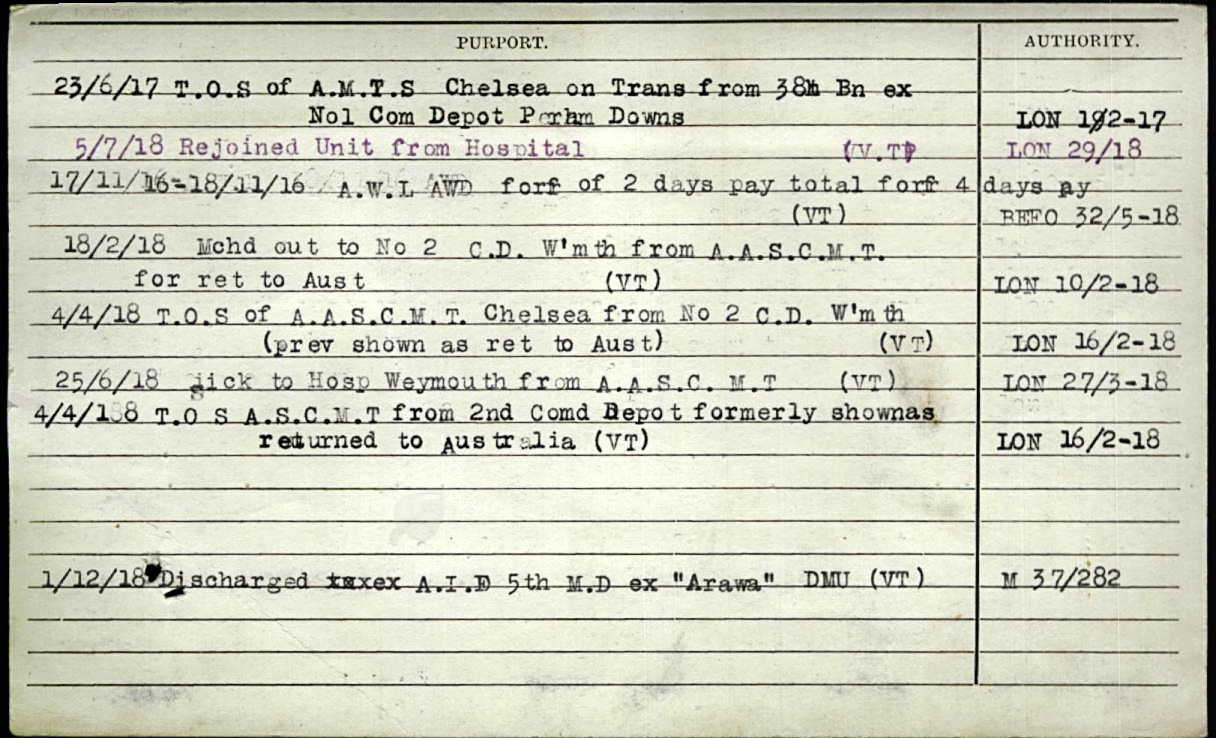 PURPORT. AUTHORITY.
23/6/17 T.O.S of A.M.T.S Chelsea on Trans from 38th Bn ex
No1 Com Depot Perham Downs LON 192-17
5/7/18 Rejoined Unit from Hospital (V.T) LON 29/18
17/11/16-18/11/16 A.W.L AWD forf of 2 days pay total forf 4 days pay
(VT) BEFO 32/5-18
18/2/18 Mchd out to No 2 C.D. W'mth from A.A.S.C.M.T.
for ret to Aust (VT) LON 10/2-18
4/4/18 T.O.S of A.A.S.C.M.T. Chelsea from No 2 C.D. W'mth
(prev shown as ret to Aust) (VT) LON 16/2-18
25/6/18 sick to Hosp Weymouth from A.A.S.C. M.T (VT) LON 27/3-18
4/4/18 T.O S A.S.C.M.T from 2nd Comd Depot formerly shownas
returned to Australia (VT) LON 16/2-18
1/12/18 Discharged ex A.I.F 5th M.D ex "Arawa" DMU (VT) M 37/282